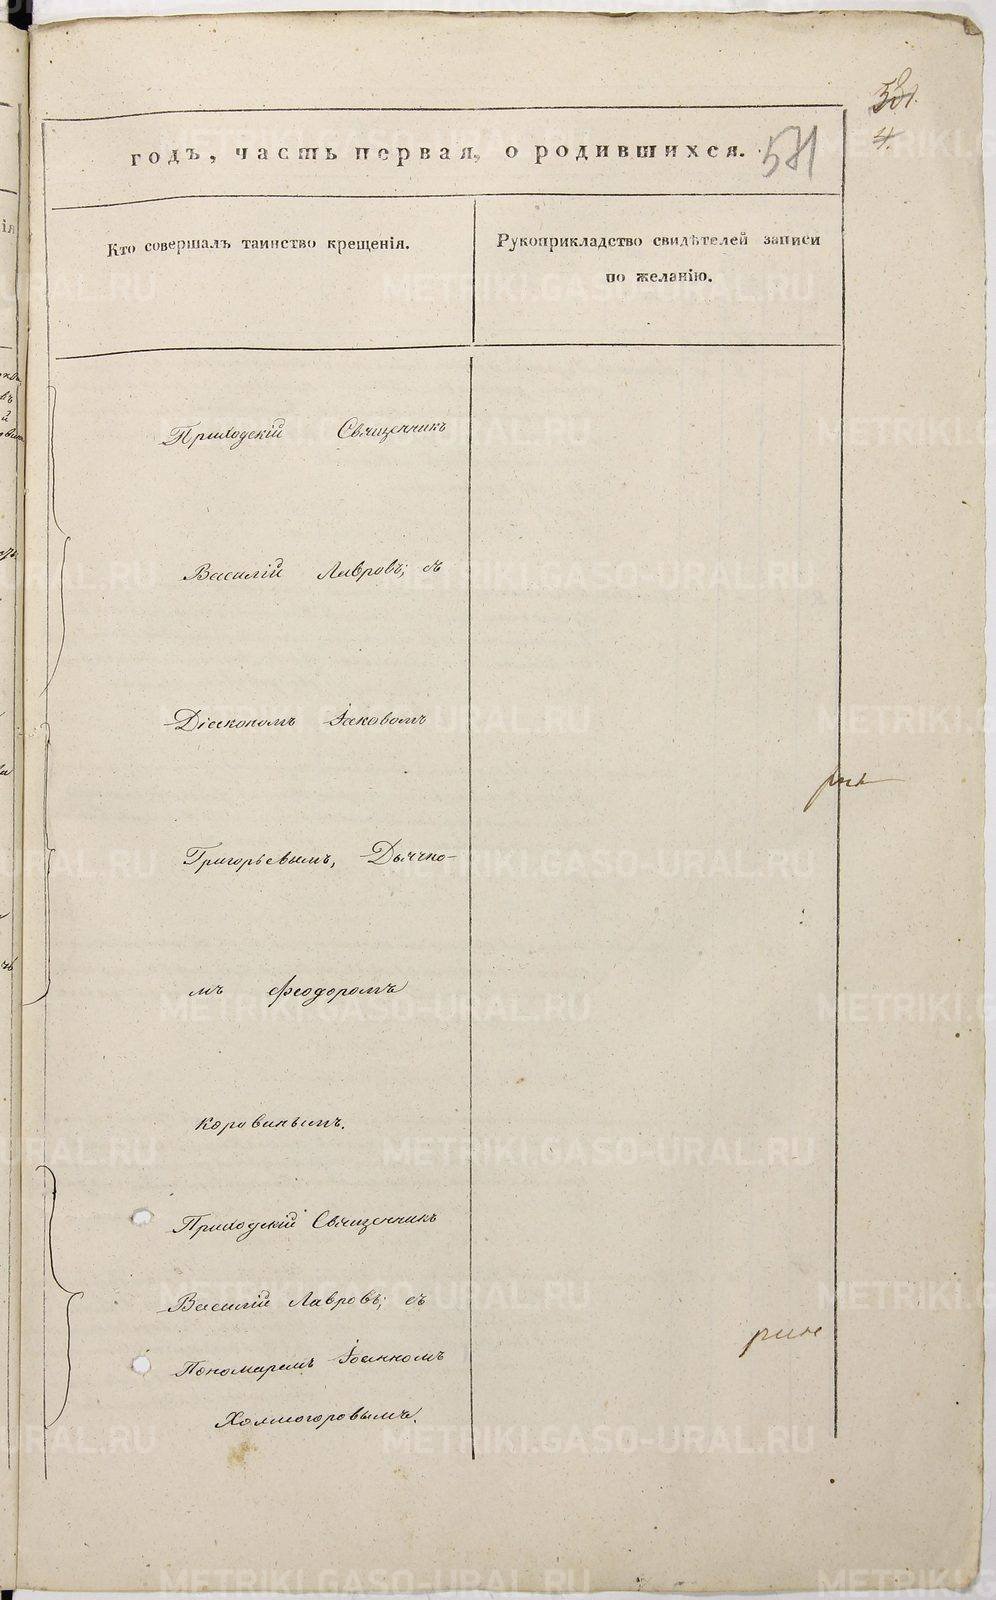 4.
годъ, часть первая, о родившихся. 571
Кто совершалъ таинство крещенія.
Рукоприкладство свидѣтелей записи
по желанію.
Приходскій Священникъ
Василій Лавровъ; съ
Діакономъ Іаковомъ
Григорьевымъ, Дьячко-
мъ Феодоромъ
Коровинымъ.
Приходскій Священникъ
Василій Лавровъ; съ
Пономаремъ Іоанномъ
Холмогоровымъ.
METRIKI.GASO-URAL.RU